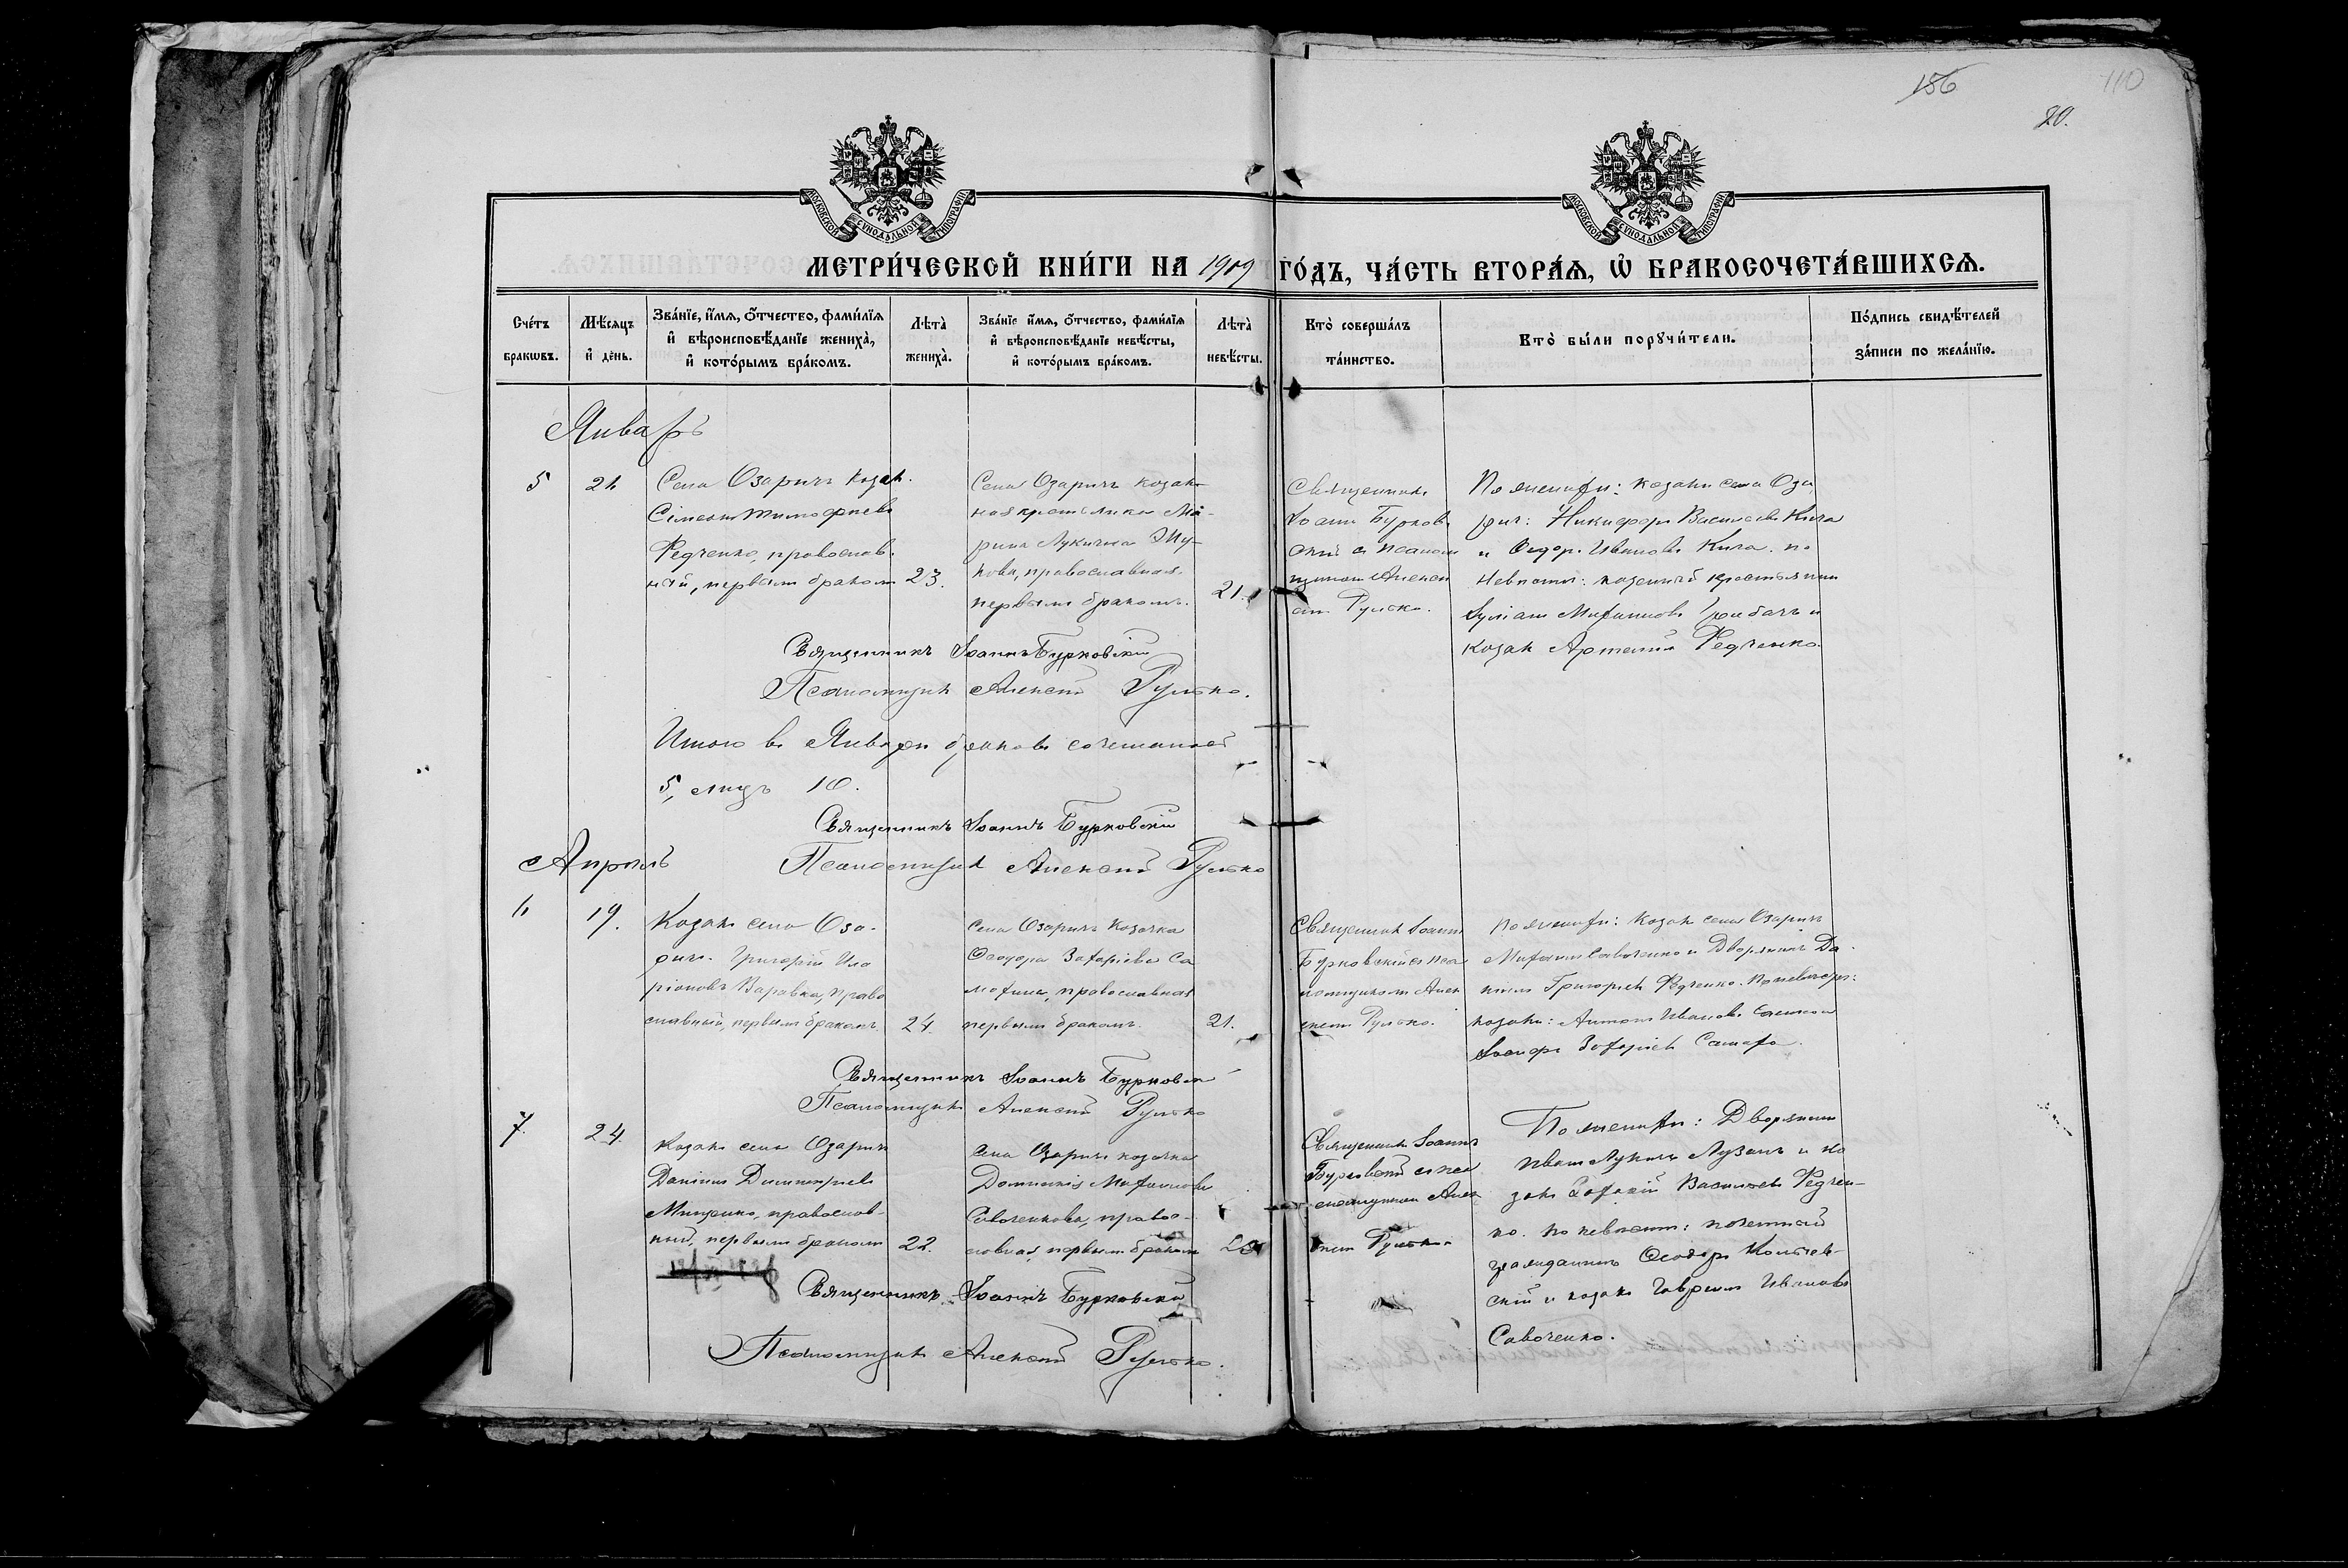 156
110
20.
МОСКОВСКОЙ СѴНОДАЛЬНОЙ ТИПОГРАФІИ
МОСКОВСКОЙ СѴНОДАЛЬНОЙ ТИПОГРАФІИ
МЕТРИ́ЧЕСКОЙ КНИ́ГИ НА 1909 ГО́ДЪ, ЧА́СТЬ ВТОРА́Ѧ, Ѽ БРАКОСОЧЕТА́ВШИХСѦ.
Сче́тъ бракѡвъ.
Мѣ́сѧцъ и҆ де́нь.
Зва́нїе, и҆́мѧ, ѻ҆́тчество, фами́лїѧ и҆ вѣроисповѣ́данїе жениха̀, и҆ кото́рымъ бра́комъ.
Лѣта̀ жениха̀.
Зва́нїе и҆́мѧ, ѻ҆́тчество, фами́лїѧ и҆ вѣроисповѣ́данїе невѣ́сты, и҆ кото́рымъ бра́комъ.
Лѣта̀ невѣ́сты.
Кто̀ соверша́лъ та́инство.
Кто̀ бы́ли порꙋчи́тели.
По́дпись свидѣ́телей за́писи по жела́нїю.
Январь
5
21
Села Озаричъ козак.
Симеон Тимофеевъ
Федченко, православ-
ный, первымъ бракомъ
23.
Села Озаричъ козач-
Ма-
рина Лукична
православная
первымъ бракомъ.
21.
Священникъ
Іоаннъ Бурков-
скій съ псалом-
щикомъ Алексѣ-
емъ Рулько.
По женихѣ: козаки села Оза-
ричъ: Никифоръ Васильевъ Кича
и Ѳедоръ Ивановъ Кича. по
невѣстѣ: казенный крестьянинъ
козак Артемій Федченко.
Священникъ Іоаннъ Бурковскій
Псаломщикъ Алексѣй Рулько.
Итого въ Январѣ браковъ сочетаній
5, лицъ 10.
Священникъ Іоаннъ Бурковскій
Псаломщикъ Алексѣй Рулько
Апрѣль
6
19.
Козакъ села Оза-
ричъ Григорій Ила-
ріоновъ Варавка, право-
славный, первымъ бракомъ
24.
Села Озаричъ козачка
Ѳеодора Захаріева Са-
православная
первымъ бракомъ.
21.
Священникъ Іоаннъ
Бурковскій съ пса-
ломщикомъ Алек-
сѣемъ Рулько.
По женихѣ: Козакъ села Озаричъ
Савоченко и Дворянинъ Да-
ніилъ Григорьевъ Федченко. По невѣстѣ:
козаки: Антонъ Ивановъ и
Захаріевъ
Священникъ Іоаннъ Бурковскій
Псаломщикъ Алексѣй Рулько
7.
24.
Козакъ села Озаричъ
Даніилъ Димитріевъ
Мищенко, православ-
ный, первымъ бракомъ
22.
Села Озаричъ козачка
Домникія
Савоченкова, право-
славная, первымъ бракомъ
Священникъ Іоаннъ
Бурковскій съ пса-
ломщикомъ Алек-
сѣемъ Рулько.
По женихѣ: Дворянинъ
Иванъ Лукичъ Лузанъ и ко-
закъ Василіевъ Федчен-
ко. по невѣстѣ: почетный
гражданинъ Ѳеодоръ
скій и козакъ Гавріилъ Ивановъ
Савоченко.
Священникъ Іоаннъ Бурковскій
Псаломщикъ Алексѣй Рулько.